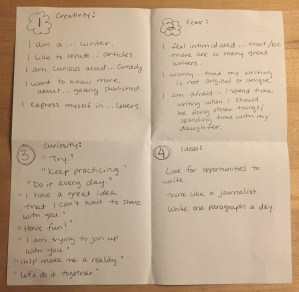 1 Creativity:
I am a... writer.
I like to create... articles.
I am curious about... comedy.
I want to know more
about... getting published.
I express myself in... letters.
2 Fear:
I feel intimidated... that/by
there are so many great
writers.
I worry... that my writing
is not original or unique.
I am afraid... I spend time
writing when I should
be doing other things/
spending time with my
daughter.
3 Curiosity:
"Try."
"Keep practicing."
"Do it every day."
"I have a great idea
that I can't wait to share
with you."
"Have fun!"
"I am trying to join up
with you."
"Help make me a reality."
"Let's do it together"
4 Ideas:
Look for opportunities to
write.
Think like a journalist.
Write one paragraph a day.